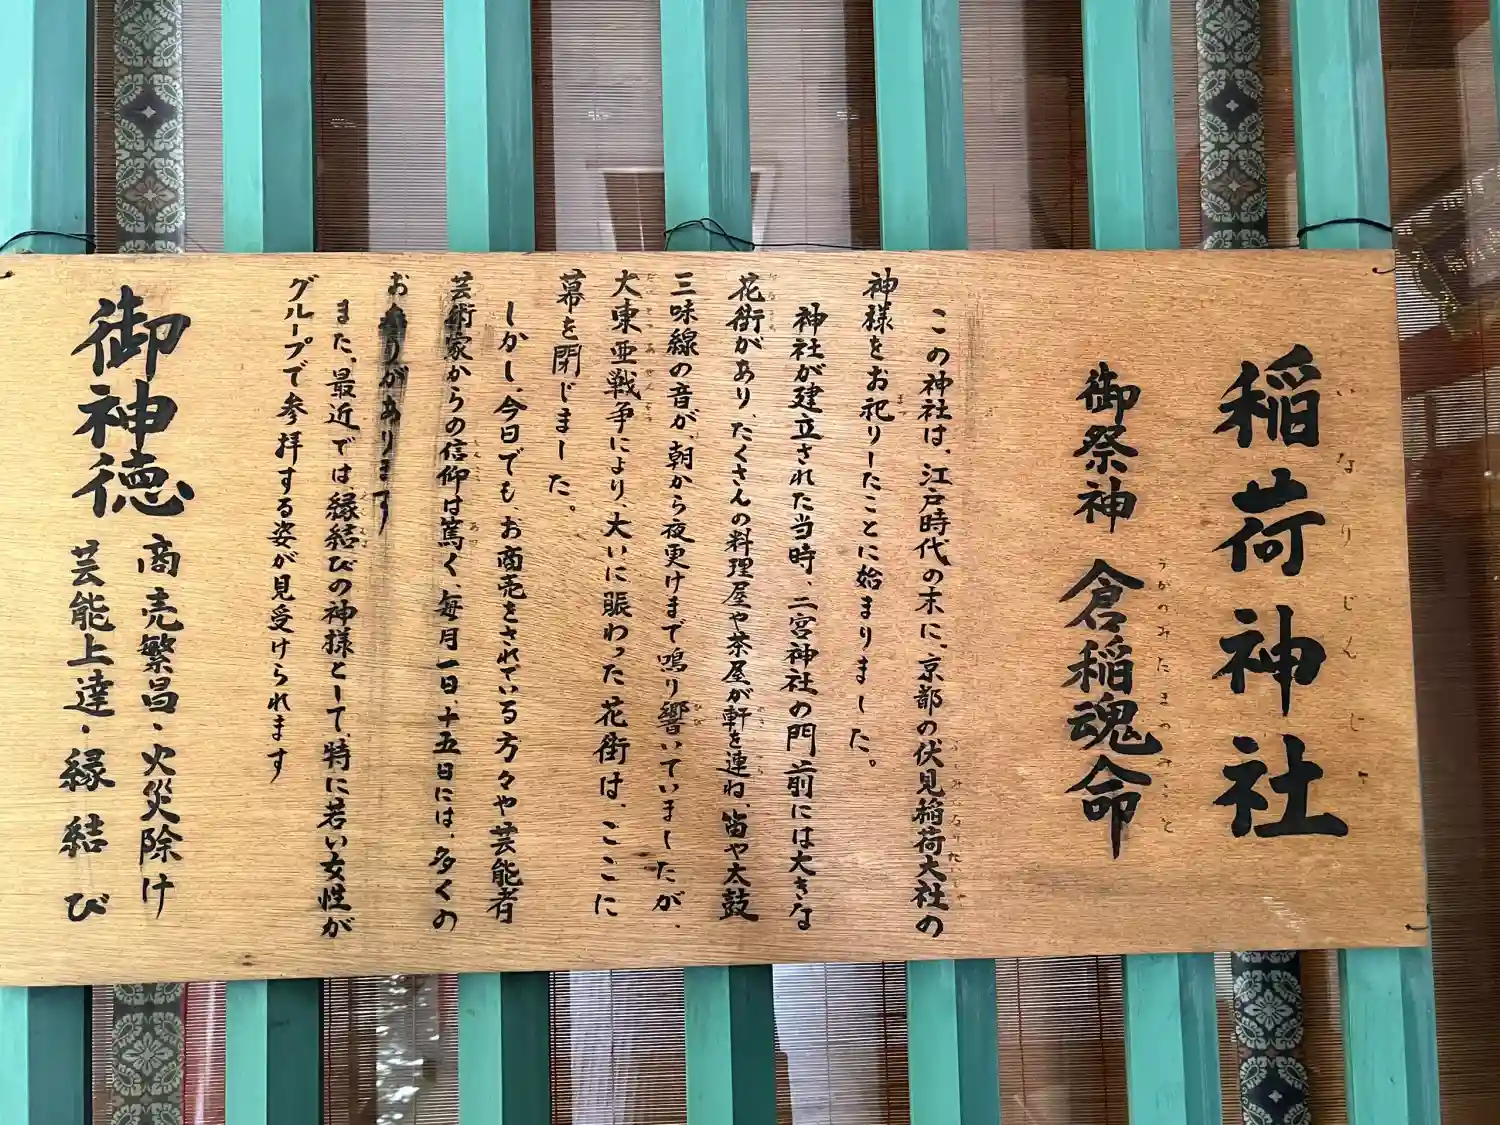 稲荷神社
いなりじんじゃ
御祭神 倉稲魂命
うがのみたまのみこと
この神社は、江戸時代の末に、京都の伏見稲荷大社の
神様をお祀りしたことに始まりました。
神社が建立された当時、二宮神社の門前には大きな
花街があり、たくさんの料理屋や茶屋が軒を連ね、笛や太鼓
三味線の音が、朝から夜更けまで鳴り響いていましたが、
大東亜戦争により、大いに賑わった花街は、ここに
幕を閉じました。
しかし、今日でも、お商売をされている方々や芸能者
芸術家からの信仰は篤く、毎月一日、十五日には、多くの
お参りがあります
また、最近では、縁結びの神様として、特に若い女性が
グループで参拝する姿が見受けられます
御神徳
商売繁昌・火災除け
芸能上達・縁結び